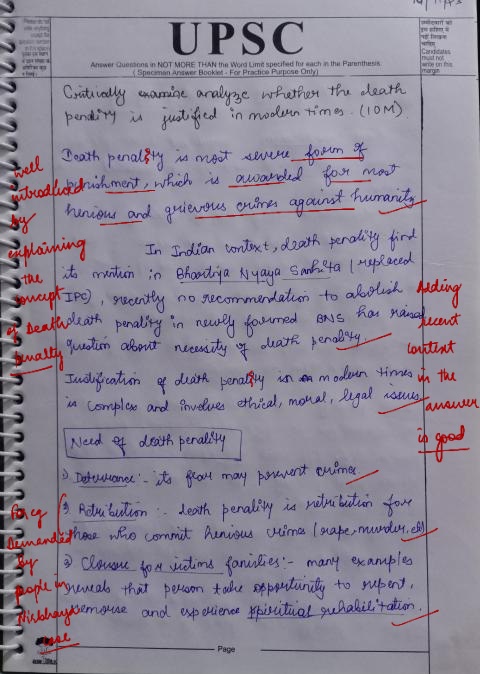 10/11/23
UPSC
Answer Questions in NOT MORE THAN the Word Limit specified for each in the Parenthesis.
( Specimen Answer Booklet - For Practice Purpose Only)
उम्मीदवारों को
इस हाशिए में
नहीं लिखना
चाहिए
Candidates
must not
write on this
margin
Critically examine analyze whether the death
penality is justified in modern times. (10M)
Death penality is most severe form of
punishment, which is awarded for most
henious and grievous crimes against humanity
well
introduced
by
explaining
the
concept
of Death
penalty
In Indian context, death penality find
its mention in Bhartiya Nyaya Sanhita (replaced
IPC), recently no recommendation to abolish
death penality in newly formed BNS has raised
question about necessity of death penality.
Adding
recent
context
in the
answer
is good
Justification of death penality in modern times
is complex and involves ethical, moral, legal issues
Need of death penality
1) Deterrance :- its fear may prevent crimes.
2) Retribution :- death penality is retribution for
those who commit henious crimes (rape, murder, etc)
For eg
Demanded
by
people in
Nirbhaya
case
3) Closure for victims families:- many examples
reveals that person take opportunity to repent,
remourse and experience spiritual rehabilitation.
Page